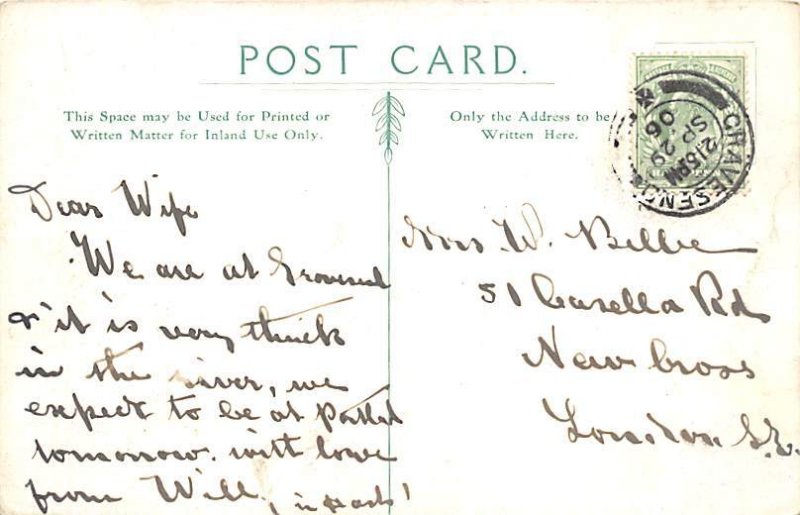 POST CARD.
This Space may be Used for Printed or
Written Matter for Inland Use Only.
Only the Address to be
Written Here.
GRAVESEND
2.15 PM
SP 29
06
Dear Wife
We are at Gravesend
& it is very thick
in the river, we
expect to be at
tomorrow. with love
from Will,
Mrs W. Bellie
51 Casella Rd
New Cross
London S.E.